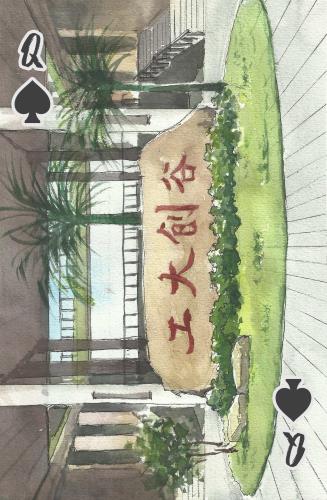 Q
工大創谷
Q